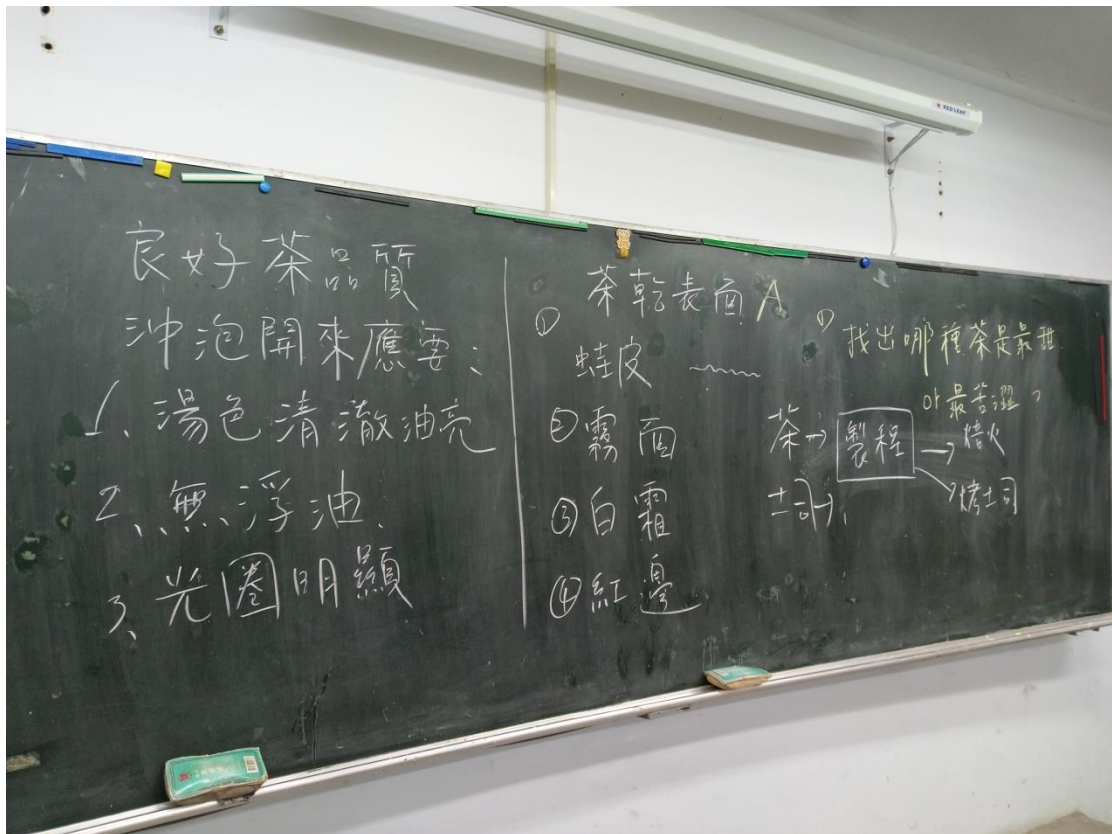 良好茶品質
沖泡開來應要:
1、湯色清澈油亮
2、無浮油、
3、光圈明顯
茶乾表面 A
① 蛙皮
② 霧面
③ 白霜
④ 紅邊
① 找出哪種茶是最甜
or 最苦澀。
茶→ 製程 → 焙火
土司→ 烤土司
RED LEAF